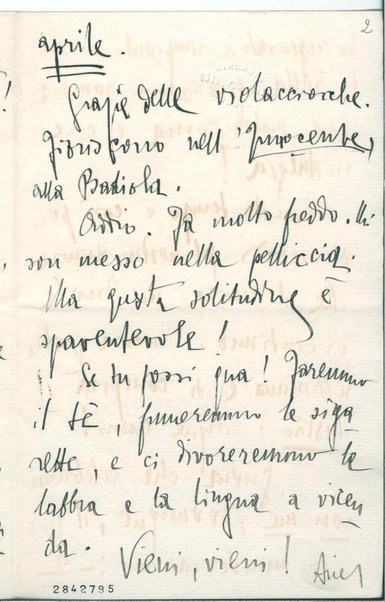 2
aprile.
Grazie delle violacciocche.
Fioriscono nell'Innocente,
alla Badiola.
Addio. Fa molto freddo. Mi
son messo nella pelliccia.
Ma questa solitudine è
spaventevole!
Se tu fossi qua! Faremmo
il tè, fumeremmo le siga
rette, e ci divoreremmo la
labbra e la lingua a vicen
da.
Vieni, vieni!
Ariel
2842795